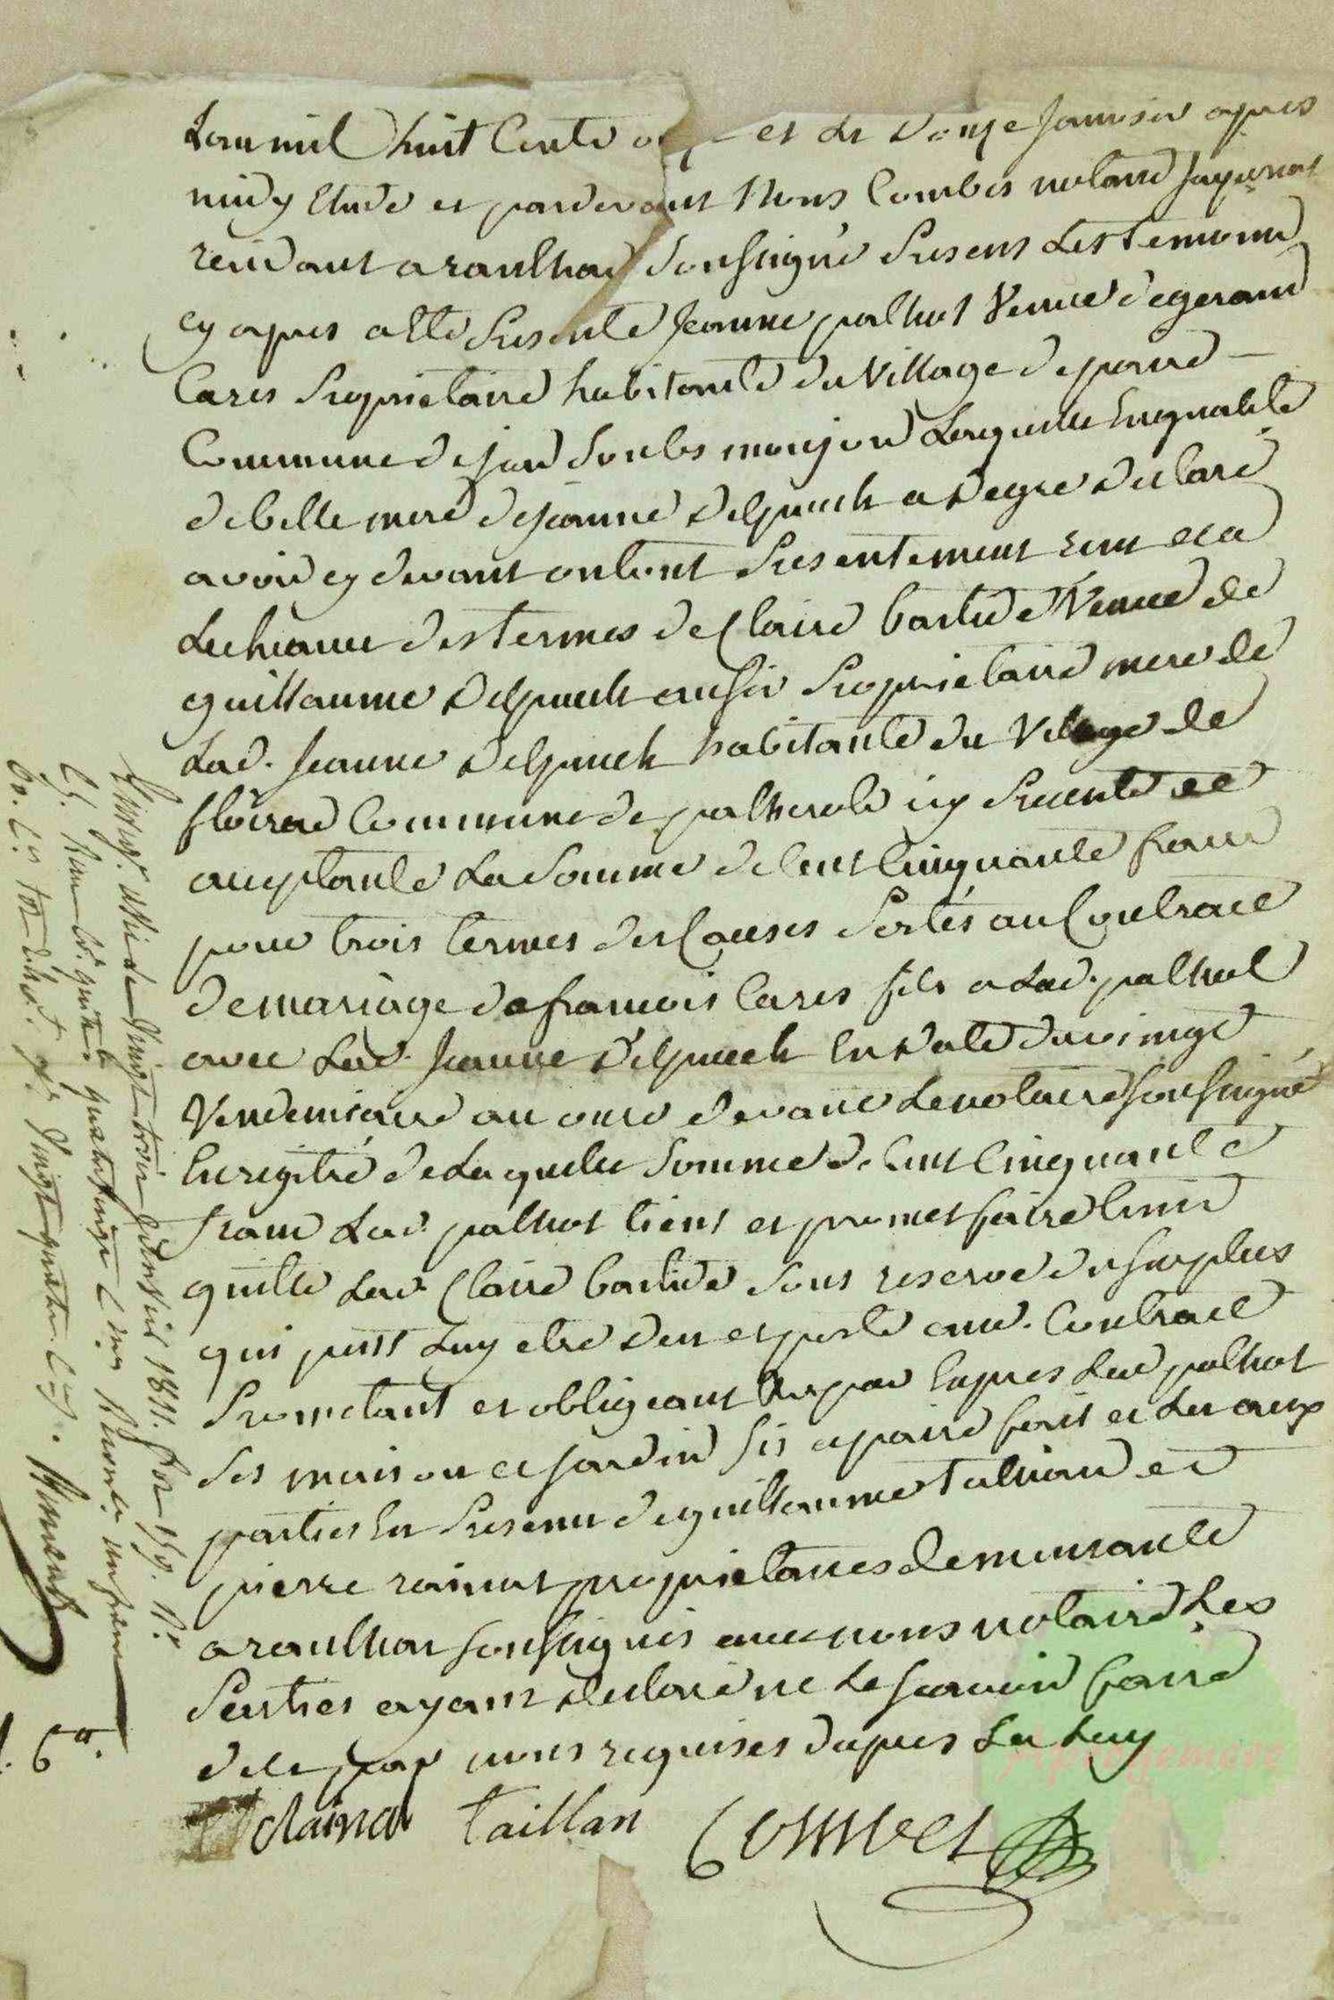 L'an mil huit cents et le douze janvier apres
midy Etude et pardevant Nous Combes notaire Imperial
residant a raulhac soussigné Presens les temoins
cy apres a été Presente Jeanne palhol Veuve de geraud
Cares Proprietaire habitante du Village de paire
Commune de jou soubs monjou Laquelle En qualité
de belle mere de jeanne delpuech a de gre declaré
avoir cy devant ou bien Presentement recu a
Lecheance des termes de Claire bastide Veuve de
guillaume delpuech aussi Proprietaire mere de
Lad. jeanne delpuech habitante du Village de
Commune de palherols icy Presente et
acceptante La Somme de Cent Cinquante francs
pour trois termes des Causes Portés au Contract
de mariage de francois Cares fils a Lad. palhol
avec Lad. Jeanne delpuech En date du vingt
Vendemiaire an onze devant Le notaire soussigné
Enregitré de Laquelle Somme de Cent Cinquante
francs Lad. palhol tient et promet faire tenir
quitte Lad. Claire bastide sous reserve du surplus
qui peut Luy etre deu et porté aud. Contract
Prometant et obligeant par Expres Lad. palhol
Ses maison et jardin sis a paire fait et Lu aux
parties En Presence de guillaume talhan et
pierre rainal proprietaires demeurants
a raulhac soussignés avec nous notaire Les
Parties ayant declaré ne Le scavoir faire
de ce par nous requises dapres La Loy
Rainal taillan Combes
Enregr. vingt trois janvier 1811. fo. 159. Ro.
Cs. Reçu pr. quittce. quatre vingt cmes.
vingt quatre
6